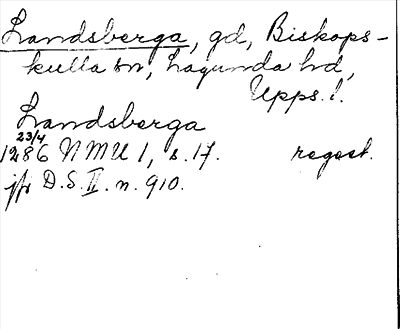 Landsberga, gd, Biskops-
kulla sn, Lagunda hd,
Upps. l.
Landsberga
23/4
1286 NMU 1, s. 17. regest.
jfr D.S. II. n. 910.